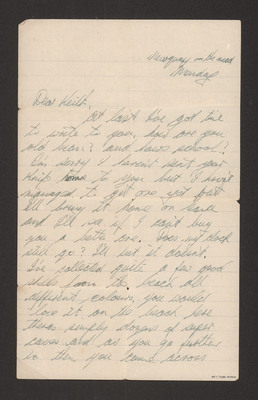 Newquay on the road
Monday
Dear Keith,
At last I've got time
to write to you, how are you
old bean? and how's school?
I'm sorry I haven't sent your
knife home to you but I haven't
managed to get one yet but
I'll bring it home on leave
and I'll see if I can't buy
you a better one. Does my clock
still go? I'll bet it doesn't.
I've collected quite a few good
shells from the beach all
different colours, you would
love it on the beach here
there simply dozens of super
caves and as you go further
in them you come across